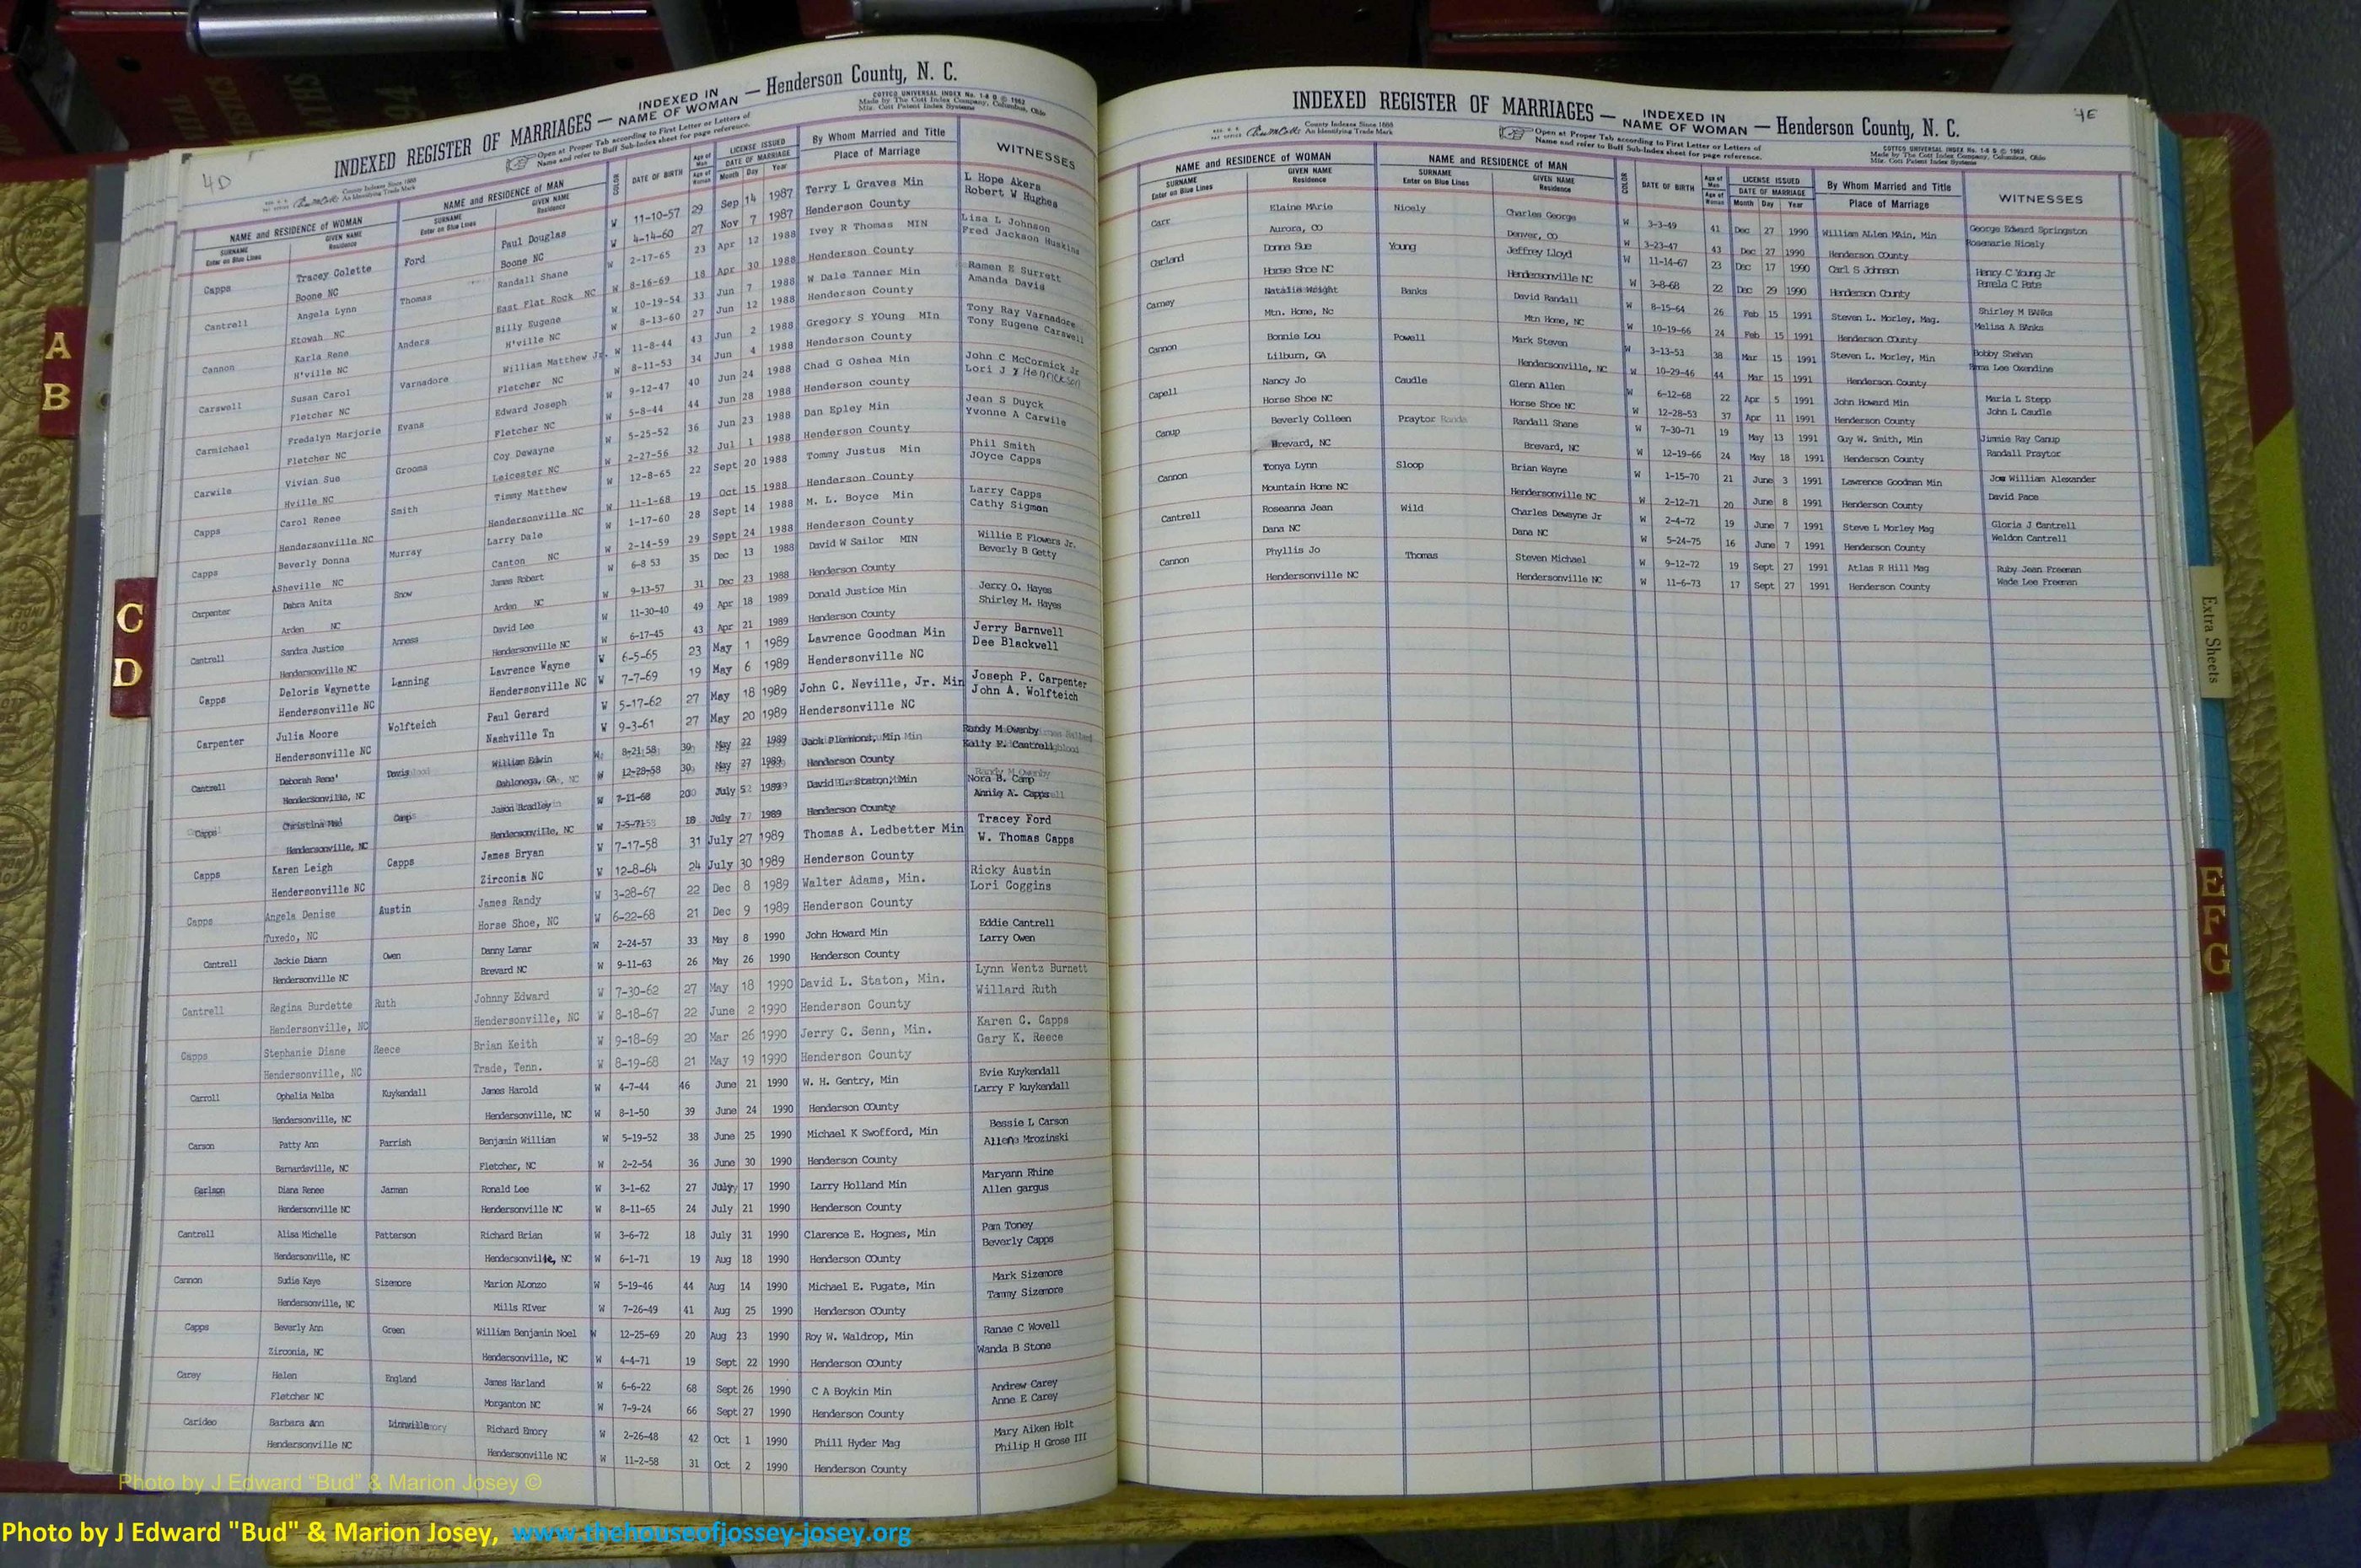 4D
INDEXED REGISTER OF MARRIAGES — INDEXED IN NAME OF WOMAN — Henderson County, N. C.
County Indexes Since 1888
An Identifying Trade Mark
Open at Proper Tab according to First Letter or Letters of
Name and refer to Buff Sub-Index sheet for page reference.
COTTCO UNIVERSAL INDEX No. 1-8 G © 1962
Made by The Cott Index Company, Columbus, Ohio
Mfr. Cott Patent Index Systems
NAME and RESIDENCE OF WOMAN NAME and RESIDENCE OF MAN COLOR DATE OF BIRTH Age of Man LICENSE ISSUED By Whom Married and Title WITNESSES
SURNAME GIVEN NAME SURNAME GIVEN NAME Age of Woman DATE OF MARRIAGE Place of Marriage
Enter on Blue Lines Residence Enter on Blue Lines Residence Month Day Year
Capps Tracey Colette Ford Paul Douglas W 11-10-57 29 Sep 14 1987 Terry L Graves Min L Hope Akers
Boone NC Boone NC W 4-14-60 27 Nov 7 1987 Henderson County Robert W Hughes
Cantrell Angela Lynn Thomas Randall Shane W 2-17-65 23 Apr 12 1988 Ivey R Thomas MIN Lisa L Johnson
Etowah NC East Flat Rock NC W 8-16-69 18 Apr 30 1988 Henderson County Fred Jackson Huskins
Cannon Karla Rene Anders Billy Eugene W 10-19-54 33 Jun 7 1988 W Dale Tanner Min Ramen E Surrett
H'ville NC H'ville NC W 8-13-60 27 Jun 12 1988 Henderson County Amanda Davis
Carswell Susan Carol Varnadore William Matthew Jr. W 11-8-44 43 Jun 2 1988 Gregory S YOung MIn Tony Ray Varnadore
Fletcher NC Fletcher NC W 8-11-53 34 Jun 4 1988 Henderson County Tony Eugene Carswell
Carmichael Fredalyn Marjorie Evans Edward Joseph W 9-12-47 40 Jun 24 1988 Chad G Oshea Min John C McCormick Jr
Fletcher NC Fletcher NC W 5-8-44 44 Jun 28 1988 Henderson county Lori J Hendrickson
Carwile Vivian Sue Grooms Coy Dewayne W 5-25-52 36 Jun 23 1988 Dan Epley Min Jean S Duyck
Hville NC Leicester NC W 2-27-56 32 Jul 1 1988 Henderson County Yvonne A Carwile
Capps Carol Renee Smith Timmy Matthew W 12-8-65 22 Sept 20 1988 Tommy Justus Min Phil Smith
Hendersonville NC Hendersonville NC W 11-1-68 19 Oct 15 1988 Henderson County JOyce Capps
Capps Beverly Donna Murray Larry Dale W 1-17-60 28 Sept 14 1988 M. L. Boyce Min Larry Capps
ASheville NC Canton NC W 2-14-59 29 Sept 24 1988 Henderson County Cathy Sigmon
Carpenter Debra Anita Snow James Robert W 6-8 53 35 Dec 13 1988 David W Sailor MIN Willie E Flowers Jr.
Arden NC Arden NC W 9-13-57 31 Dec 23 1988 Henderson County Beverly B Getty
Cantrell Sandra Justice Anness David Lee W 11-30-40 49 Apr 18 1989 Donald Justice Min Jerry O. Hayes
Hendersonville NC Hendersonville NC W 6-17-45 43 Apr 21 1989 Henderson County Shirley M. Hayes
Capps Deloris Waynette Lanning Lawrence Wayne W 6-5-65 23 May 1 1989 Lawrence Goodman Min Jerry Barnwell
Hendersonville NC Hendersonville NC W 7-7-69 19 May 6 1989 Hendersonville NC Dee Blackwell
Carpenter Julia Moore Wolfteich Paul Gerard W 5-17-62 27 May 18 1989 John C. Neville, Jr. Min Joseph P. Carpenter
Hendersonville NC Nashville Tn W 9-3-61 27 May 20 1989 Hendersonville NC John A. Wolfteich
Cantrell Deborah Rene' Davis William Edwin W 8-21-58 30 May 22 1989 Jack Plemond, Min Randy M Owenby
Hendersonville, NC Dahlonega, GA W 12-28-58 30 May 27 1989 Henderson County Kelly F. Cantrell
Capps Christina Mae Camp Jason Bradley W 7-11-68 20 July 5 1989 David L. Staton, Min Nora B. Camp
Hendersonville, NC Hendersonville, NC W 7-5-71 18 July 7 1989 Henderson County Annie A. Capps
Capps Karen Leigh Capps James Bryan W 7-17-58 31 July 27 1989 Thomas A. Ledbetter Min Tracey Ford
Hendersonville NC Zirconia NC W 12-8-64 24 July 30 1989 Henderson County W. Thomas Capps
Capps Angela Denise Austin James Randy W 3-28-67 22 Dec 8 1989 Walter Adams, Min. Ricky Austin
Tuxedo, NC Horse Shoe, NC W 6-22-68 21 Dec 9 1989 Henderson County Lori Coggins
Cantrell Jackie Diann Owen Danny Lamar W 2-24-57 33 May 8 1990 John Howard Min Eddie Cantrell
Hendersonville NC Brevard NC W 9-11-63 26 May 26 1990 Henderson County Larry Owen
Cantrell Regina Burdette Ruth Johnny Edward W 7-30-62 27 May 18 1990 David L. Staton, Min. Lynn Wentz Burnett
Hendersonville, NC Hendersonville, NC W 8-18-67 22 June 2 1990 Henderson County Willard Ruth
Capps Stephanie Diane Reece Brian Keith W 9-18-69 20 Mar 26 1990 Jerry C. Senn, Min. Karen C. Capps
Hendersonville, NC Trade, Tenn. W 8-19-68 21 May 19 1990 Henderson County Gary K. Reece
Carroll Ophelia Melba Kuykendall James Harold W 4-7-44 46 June 21 1990 W. H. Gentry, Min Evie Kuykendall
Hendersonville, NC Hendersonville, NC W 8-1-50 39 June 24 1990 Henderson COunty Larry F kuykendall
Carson Patty Ann Parrish Benjamin William W 5-19-52 38 June 25 1990 Michael K Swofford, Min Bessie L Carson
Barnardsville, NC Fletcher, NC W 2-2-54 36 June 30 1990 Henderson County Allene Mrozinski
Carlson Diana Renee Jarman Ronald Lee W 3-1-62 27 July 17 1990 Larry Holland Min Maryann Rhine
Hendersonville NC Hendersonville NC W 8-11-65 24 July 21 1990 Henderson County Allen gargus
Cantrell Alisa Michelle Patterson Richard Brian W 3-6-72 18 July 31 1990 Clarence E. Hognes, Min Pam Toney
Hendersonville, NC Hendersonville, NC W 6-1-71 19 Aug 18 1990 Henderson COunty Beverly Capps
Cannon Sudie Kaye Sizemore Marion ALonzo W 5-19-46 44 Aug 14 1990 Michael E. Fugate, Min Mark Sizemore
Hendersonville, NC Mills RIver W 7-26-49 41 Aug 25 1990 Henderson COunty Tammy Sizemore
Capps Beverly Ann Green William Benjamin Noel W 12-25-69 20 Aug 23 1990 Roy W. Waldrop, Min Ranae C Wovell
Zirconia, NC Hendersonville, NC W 4-4-71 19 Sept 22 1990 Henderson COunty Wanda B Stone
Carey Helen England James Harland W 6-6-22 68 Sept 26 1990 C A Boykin Min Andrew Carey
Fletcher NC Morganton NC W 7-9-24 66 Sept 27 1990 Henderson County Anne E Carey
Carideo Barbara Ann Richard Emory W 2-26-48 42 Oct 1 1990 Phill Hyder Mag Mary Aiken Holt
Hendersonville NC Hendersonville NC W 11-2-58 31 Oct 2 1990 Henderson County Philip H Grose III
4E
INDEXED REGISTER OF MARRIAGES — INDEXED IN NAME OF WOMAN — Henderson County, N. C.
County Indexes Since 1888
An Identifying Trade Mark
Open at Proper Tab according to First Letter or Letters of
Name and refer to Buff Sub-Index sheet for page reference.
COTTCO UNIVERSAL INDEX No. 1-8 G © 1962
Made by The Cott Index Company, Columbus, Ohio
Mfr. Cott Patent Index Systems
NAME and RESIDENCE OF WOMAN NAME and RESIDENCE OF MAN COLOR DATE OF BIRTH Age of Man LICENSE ISSUED By Whom Married and Title WITNESSES
SURNAME GIVEN NAME SURNAME GIVEN NAME Age of Woman DATE OF MARRIAGE Place of Marriage
Enter on Blue Lines Residence Enter on Blue Lines Residence Month Day Year
Carr Elaine MArie Nicely Charles George W 3-3-49 41 Dec 27 1990 William ALlen MAin, Min George Edward Springston
Aurora, CO Denver, CO W 3-23-47 43 Dec 27 1990 Henderson COunty Rosemarie Nicely
Garland Donna Sue Young Jeffrey Lloyd W 11-14-67 23 Dec 17 1990 Carl S Johnson Henry C Young Jr
Horse Shoe NC Hendersonville NC W 3-8-68 22 Dec 29 1990 Henderson County Pamela C Pate
Carney Natalie Wright Banks David Randall W 8-15-64 26 Feb 15 1991 Steven L. Morley, Mag. Shirley M BANks
Mtn. Home, Nc Mtn Home, NC W 10-19-66 24 Feb 15 1991 Henderson COunty Melisa A BAnks
Cannon Bonnie Lou Powell Mark Steven W 3-13-53 38 Mar 15 1991 Steven L. Morley, Min Bobby Shehan
Lilburn, GA Hendersonville, NC W 10-29-46 44 Mar 15 1991 Henderson County Lee Oxendine
Capell Nancy Jo Caudle Glenn Allen W 6-12-68 22 Apr 5 1991 John Howard Min Maria L Stepp
Horse Shoe NC Horse Shoe NC W 12-28-53 37 Apr 11 1991 Henderson County John L Caudle
Canup Beverly Colleen Praytor Randall Shane W 7-30-71 19 May 13 1991 Guy W. Smith, Min Jimmie Ray Canup
Brevard, NC Brevard, NC W 12-19-66 24 May 18 1991 Henderson County Randall Praytor
Cannon Tonya Lynn Sloop Brian Wayne W 1-15-70 21 June 3 1991 Lawrence Goodman Min Joe William Alexander
Mountain Home NC Hendersonville NC W 2-12-71 20 June 8 1991 Henderson County David Pace
Cantrell Roseanna Jean Wild Charles Dewayne Jr W 2-4-72 19 June 7 1991 Steve L Morley Mag Gloria J Cantrell
Dana NC Dana NC W 5-24-75 16 June 7 1991 Henderson County Weldon Cantrell
Cannon Phyllis Jo Thomas Steven Michael W 9-12-72 19 Sept 27 1991 Atlas R Hill Mag Ruby Jean Freeman
Hendersonville NC Hendersonville NC W 11-6-73 17 Sept 27 1991 Henderson County Wade Lee Freeman
A
B
C
D
Extra Sheets
E
F
G
Photo by J Edward “Bud” & Marion Josey ©
Photo by J Edward "Bud" & Marion Josey, www.thehouseofjossey-josey.org